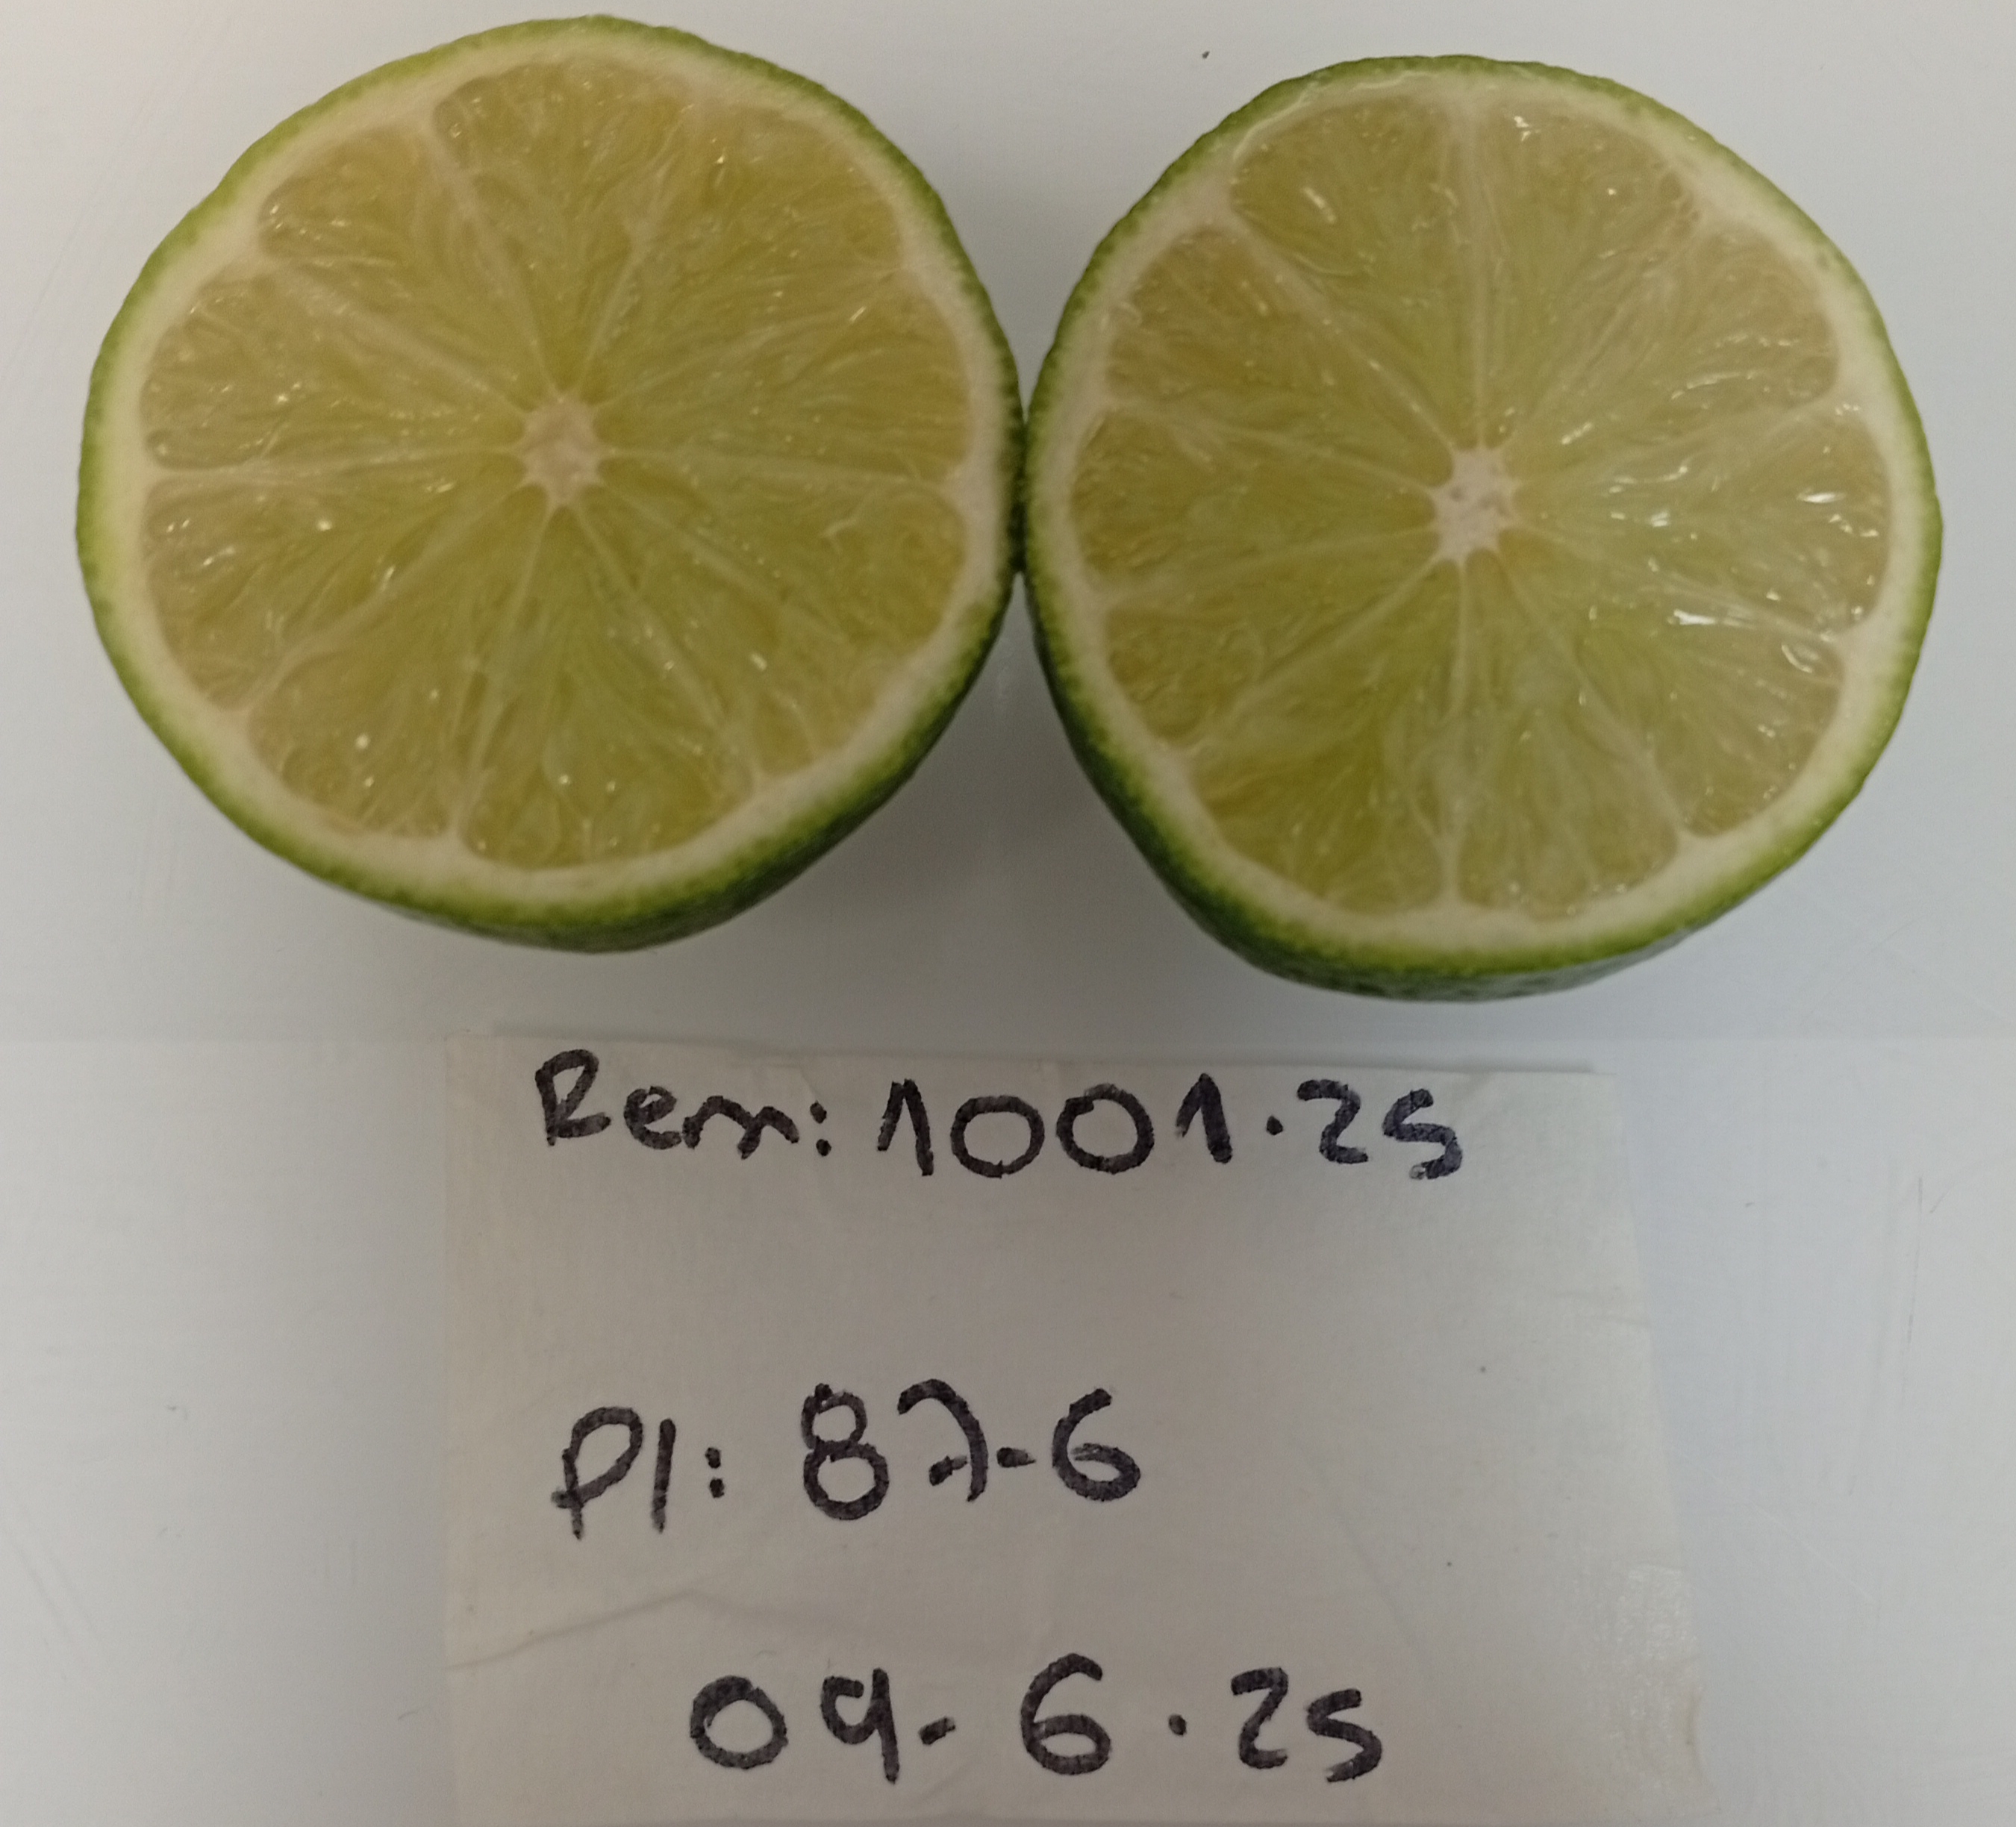 Rem: 1001.25
Pl: 87-6
09.6.25